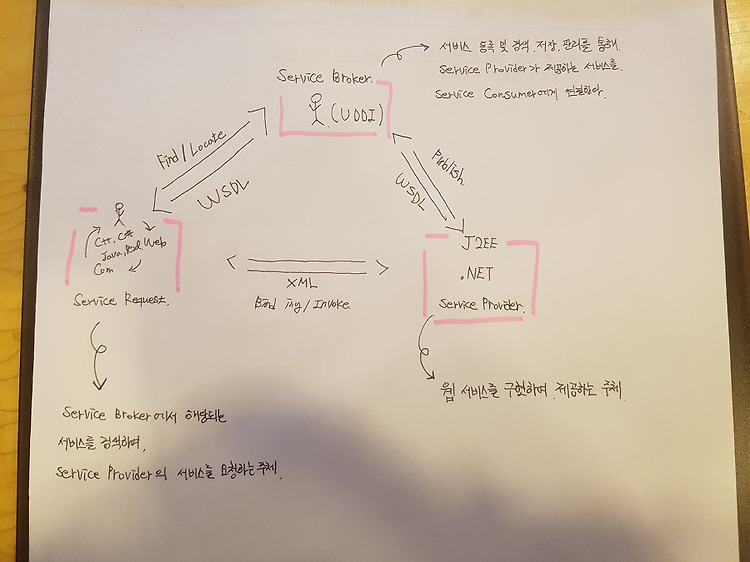 서비스 등록 및 검색, 저장, 관리를 통해
Service Provider가 제공하는 서비스를
Service Consumer에게 연결한다.
Service Broker.
(UDDI)
Find/Locate
WSDL
Publish.
WSDL
C++, C#
Java, Web
Com
Service Request.
XML
Binding/Invoke.
J2EE
.NET
Service Provider.
웹 서비스를 구현하여 제공하는 주체.
Service Broker에서 해당되는
서비스를 검색하며,
Service Provider의 서비스를 요청하는 주체.